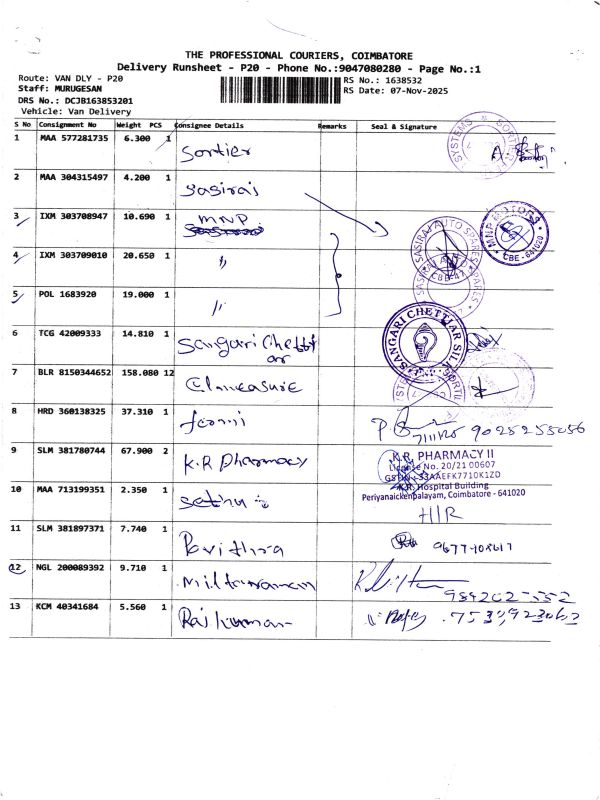 THE PROFESSIONAL COURIERS, COIMBATORE
Delivery Runsheet - P20 - Phone No.:9047080280 - Page No.:1
Route: VAN DLY - P20
Staff: MURUGESAN
DRS No.: DCJB163853201
Vehicle: Van Delivery
RS No.: 1638532
RS Date: 07-Nov-2025
S No Consignment No Weight PCS Consignee Details Remarks Seal & Signature
1 MAA 577281735 6.300 1 Sortier
2 MAA 304315497 4.200 1 Sasiraj
3 IXM 303708947 10.690 1 MNP
4 IXM 303709010 20.650 1 "
5 POL 1683920 19.000 1 "
SASIRAJ AUTO SPARES
MNP MOTORS
CBE - 641020
6 TCG 42009333 14.810 1 Sangari Chetti
ar
SANGARI CHETTIAR SILK
7 BLR 8150344652 158.080 12
8 HRD 360138325 37.310 1
9 SLM 381780744 67.900 2 K.R Pharmacy
K.R. PHARMACY II
License No. 20/21 00607
K.R. Hospital Building
Periyanaickenpalayam, Coimbatore - 641020
10 MAA 713199351 2.350 1 Sethu
H/R
11 SLM 381897371 7.740 1 Pavithra
12 NGL 200089392 9.710 1
13 KCM 40341684 5.560 1 Rajkumar